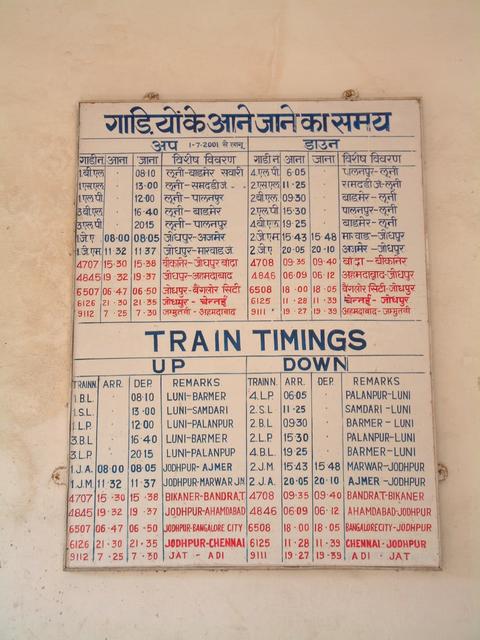 गाड़ियों के आने जाने का समय
अप 1-7-2001 से लागू डाउन
गाडी न. आना जाना विशेष विवरण गाडी न. आना जाना विशेष विवरण
1.बी.एल · 08.10 लूनी-बाडमेर सवारी 4.एल.पी 6.05 · पालनपुर-लूनी
1.एस.एल · 13.00 लूनी-समदडी ज. 2.एस.एल 11.25 · समदडी ज.-लूनी
1.एल.पी · 12.00 लूनी-पालनपुर 2.बी.एल 09.30 · बाडमेर-लूनी
3.बी.एल · 16.40 लूनी-बाडमेर 2.एल.पी 15.30 · पालनपुर-लूनी
3.एल.पी · 20.15 लूनी-पालनपुर 4.बी.एल 19.25 · बाडमेर-लूनी
1.जे.ए 08.00 08.05 जोधपुर-अजमेर 2.जे.एम 15.43 15.48 मारवाड-जोधपुर
1.जे.एम 11.32 11.37 जोधपुर-मारवाड ज. 2.जे.ए 20.05 20.10 अजमेर-जोधपुर
4707 15.30 15.38 बीकानेर-बांद्रा 4708 09.35 09.40 बांद्रा-बीकानेर
4845 19.32 19.37 जोधपुर-अहमदाबाद 4846 06.09 06.12 अहमदाबाद-जोधपुर
6507 06.47 06.50 जोधपुर-बैंगलोर सिटी 6508 18.00 18.05 बैंगलोर सिटी-जोधपुर
6126 21.30 21.35 जोधपुर-चेन्नई 6125 11.28 11.39 चेन्नई-जोधपुर
9112 7.25 7.30 9111 19.27 19.39
TRAIN TIMINGS
UP DOWN
TRAINN. ARR. DEP. REMARKS TRAINN. ARR. DEP. REMARKS
1.B.L. · 08.10 LUNI-BARMER 4.L.P. 06.05 · PALANPUR-LUNI
1.S.L. · 13.00 LUNI-SAMDARI 2.S.L 11.25 · SAMDARI-LUNI
1.L.P. · 12.00 LUNI-PALANPUR 2.B.L 09.30 · BARMER-LUNI
3.B.L · 16.40 LUNI-BARMER 2.L.P 15.30 · PALANPUR-LUNI
3.L.P. · 20.15 LUNI-PALANPUP 4.B.L 19.25 · BARMER-LUNI
1.J.A. 08.00 08.05 JODHPUR-AJMER 2.J.M 15.43 15.48 MARWAR-JODHPUR
1.J.M 11.32 11.37 JODHPUR-MARWAR JN. 2.J.A 20.05 20.10 AJMER-JODHPUR
4707 15.30 15.38 BIKANER-BANDRAT 4708 09.35 09.40 BANDRAT-BIKANER
4845 19.32 19.37 JODHPUR-AHAMDABAD 4846 06.09 06.12 AHAMADABAD-JODHPUR
6507 06.47 06.50 JODHPUR-BANGALORE CITY 6508 18.00 18.05 BANGALORECITY-JODHPUR
6126 21.30 21.35 JODHPUR-CHENNAI 6125 11.28 11.39 CHENNAI-JODHPUR
9112 7.25 7.30 JAT-ADI 9111 19.27 19.39 ADI.JAT